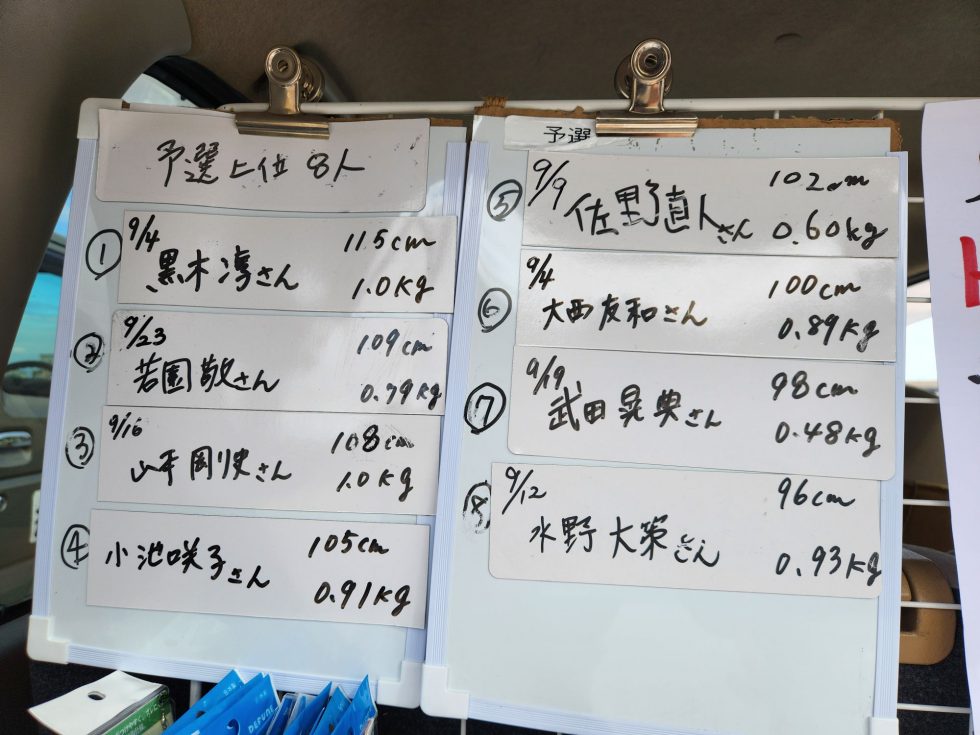 予選上位 8人
① 9/4 115cm
黒木淳さん 1.0kg
② 9/23 109cm
若園敬さん 0.79kg
③ 9/16 108cm
山本剛史さん 1.0kg
④ 105cm
小池咲子さん 0.91kg
予選
⑤ 9/9 102cm
佐野直人さん 0.60kg
⑥ 9/4 100cm
大西友和さん 0.89kg
⑦ 9/19 98cm
武田晃典さん 0.48kg
⑧ 9/12 96cm
水野大策さん 0.93kg